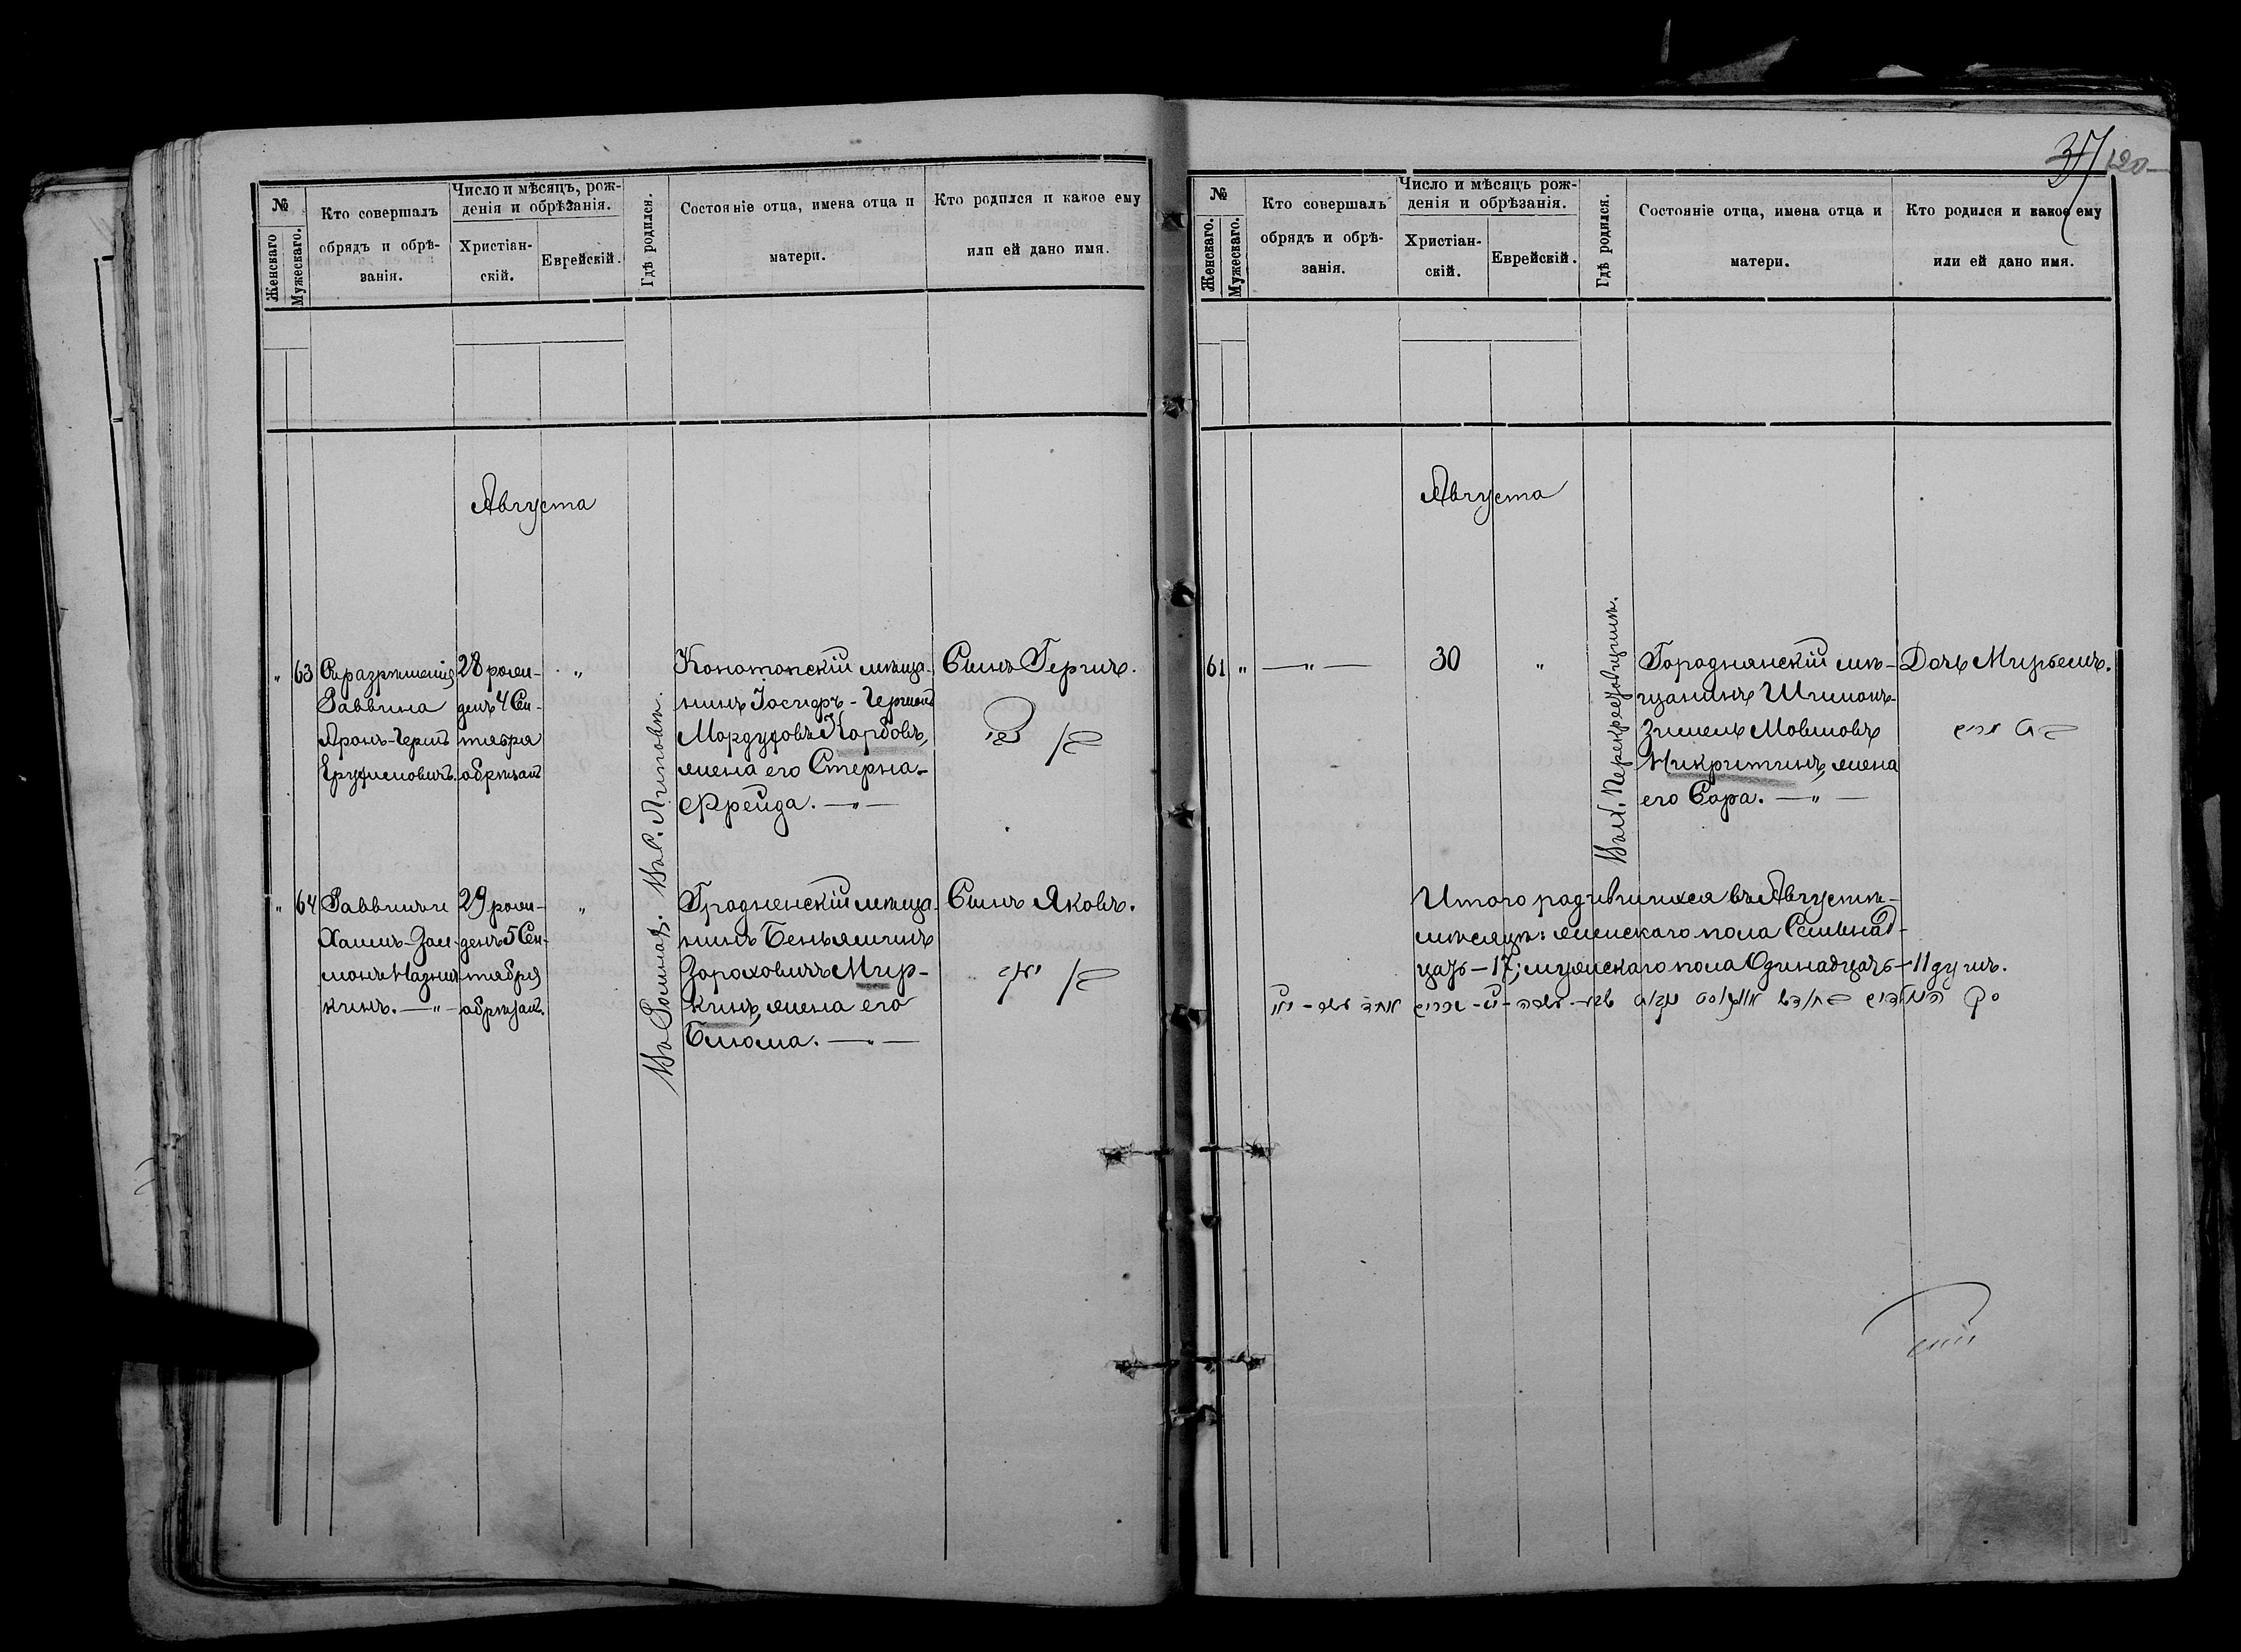 №
Женскаго
Мужескаго.
Кто совершалъ
обрядъ и обрѣ-
занія.
Число и мѣсяцъ, рож-
денія и обрѣзанія.
Христіан-
скій.
Еврейскій.
Гдѣ родился.
Состояніе отца, имена отца и
матери.
Кто родился и какое ему
или ей дано имя.
Августа
" 63
Съ разрѣшенія
Раввина
Аронъ-Гершъ
28 рож-
денъ 4 Сен-
тября
обрѣзанъ
"
Въ с. Липовкѣ.
Конотопскій мѣща-
нинъ Іосифъ-Гершонъ
Мордуховъ Корбовъ,
жена его Стерна-
Фрейда. —"—
Сынъ Гершъ.
" 64
Раввинъ
29 рож-
денъ 5 Сен-
тября
обрѣзанъ.
"
Въ Ромнах.
Гродненскій мѣща-
нинъ Беньяминъ
Зораховичъ Мир-
кинъ, жена его
Блюма. —"—
Сынъ Яковъ.
37 120
№
Женскаго.
Мужескаго.
Кто совершалъ
обрядъ и обрѣ-
занія.
Число и мѣсяцъ рож-
денія и обрѣзанія.
Христіан-
скій.
Еврейскій.
Гдѣ родился.
Состояніе отца, имена отца и
матери.
Кто родился и какое ему
или ей дано имя.
Августа
61 " —"—
30
"
Городнянскій мѣ-
щанинъ Шимонъ-
Зимель Мовшовъ
жена
его Сора. —"—
Дочь Мирьемъ.
בת מרים
Итого родившихся въ Августѣ-
мѣсяцѣ: женскаго пола Семьнад-
цать — 17; мужскаго пола Одинадцать — 11 душъ.